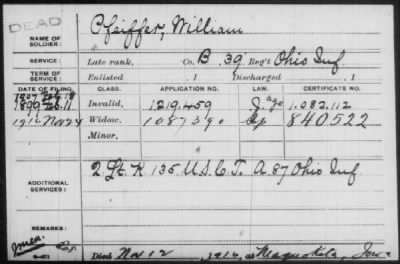 DEAD
NAME OF SOLDIER: Pfeiffer, William
SERVICE: Late rank, Co. B, 39 Reg't Ohio Inf
TERM OF SERVICE: Enlisted , 1 Discharged , 1
DATE OF FILING. CLASS. APPLICATION NO. LAW. CERTIFICATE NO.
1907 Feb. 18
1899 Feb. 11 Invalid, 1219.459 J age 1.082.112
1916 Nov 24 Widow, 1087390 840522
Minor,
ADDITIONAL SERVICES: 2 Lt. K 135 U.S.C.T. A. 87 Ohio Inf
REMARKS:
Died Nov 12, 1916, at Maquoketa, Iowa